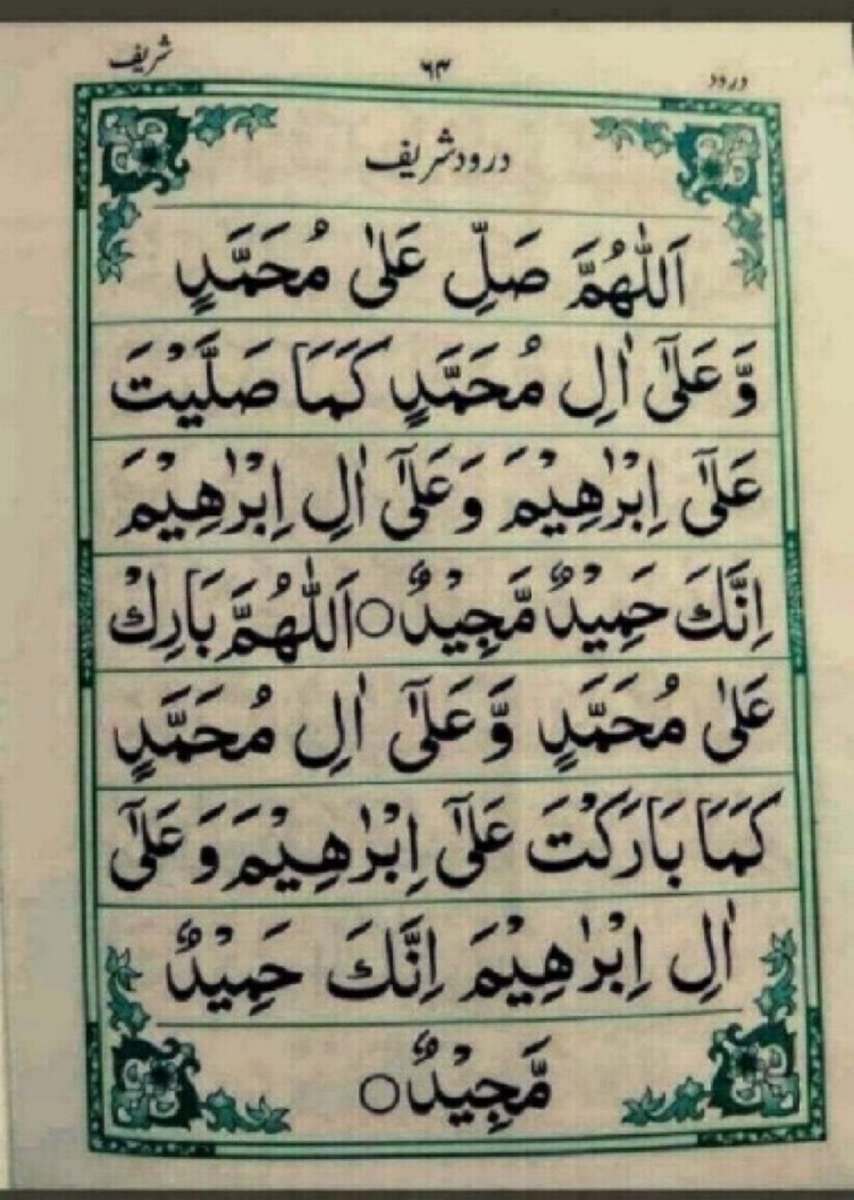 درود ٦٣ شریف
درود شریف
اَللّٰهُمَّ صَلِّ عَلٰى مُحَمَّدٍ
وَّ عَلٰٓى اٰلِ مُحَمَّدٍ كَمَا صَلَّيْتَ
عَلٰٓى اِبْرٰهِيْمَ وَ عَلٰٓى اٰلِ اِبْرٰهِيْمَ
اِنَّكَ حَمِيْدٌ مَّجِيْدٌ○ اَللّٰهُمَّ بَارِكْ
عَلٰى مُحَمَّدٍ وَّ عَلٰٓى اٰلِ مُحَمَّدٍ
كَمَا بَارَكْتَ عَلٰٓى اِبْرٰهِيْمَ وَ عَلٰٓى
اٰلِ اِبْرٰهِيْمَ اِنَّكَ حَمِيْدٌ
مَّجِيْدٌ○